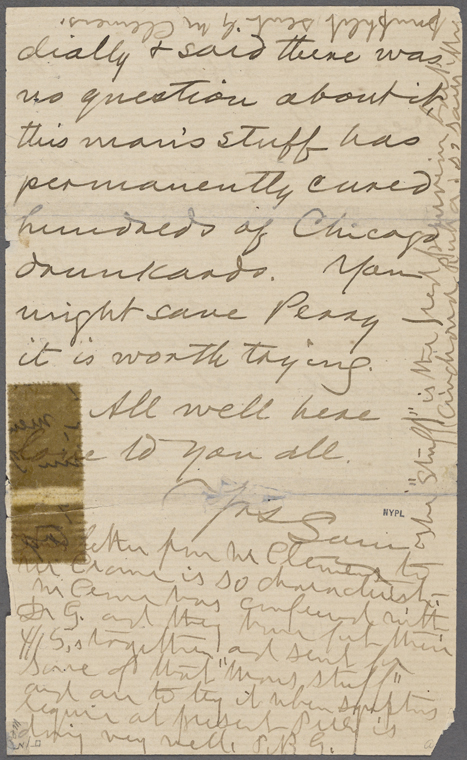 pamphlet sent by Mr Clemens.
dially & said there was
no question about it,
this man's stuff has
permanently cured
hundreds of Chicago
drunkards. You
might save Perry —
it is worth trying.
All well here
Love to you all.
Yrs
Sam
NYPL
letter from Mr Clemens to
Mr Crane is so characteristic
Mr Crane has conferred with
Dr G. and they have put their
together and sent for
some of that "Mans stuff"
and are to try it when symptoms
require at present Perry is
doing very well.
"stuff" is the